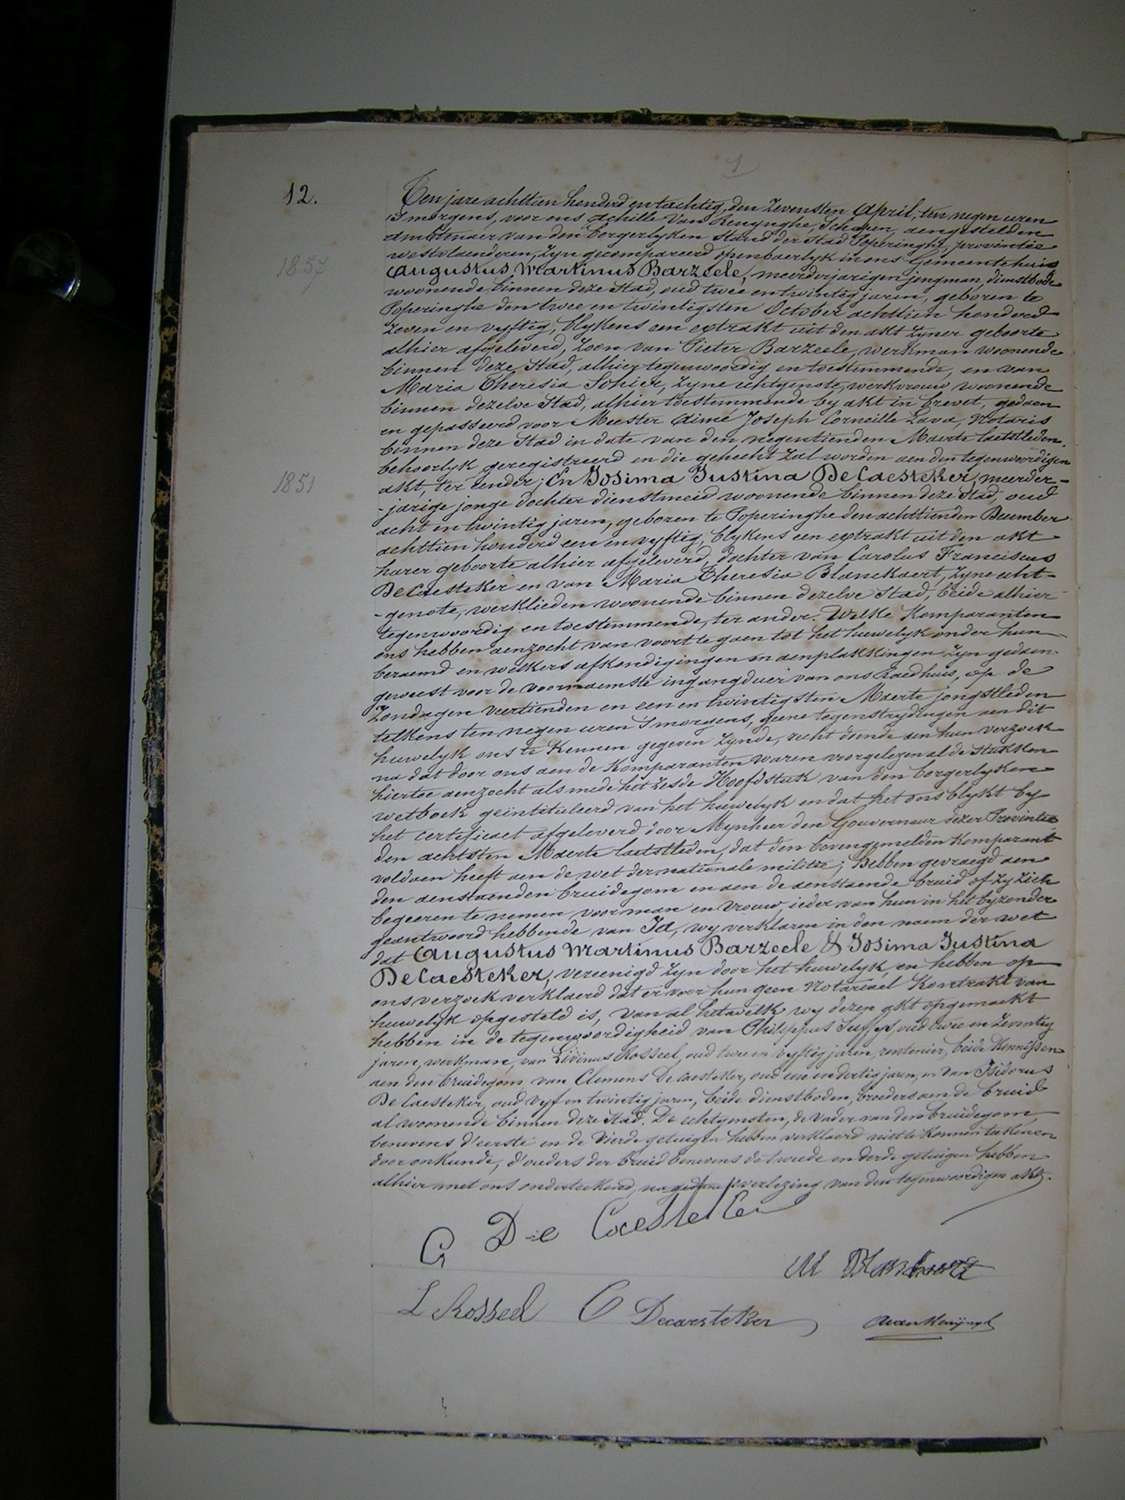 1
12.
Ten jare achttien honderd en tachtig, den zevensten April, ten negen uren
's morgens, voor ons Achille Van Renynghe, Schepen, aengestelden
ambtenaer van den borgerlyken stand der Stad Poperinghe, provintie
westvlaenderen, zyn gecompareerd openbaerlyk in ons Gemeentehuis
1857
Augustus Martinus Barzeele, meerderjarigen jongman, dienstbode
woonende binnen deze Stad, oud twee en twintig jaren, geboren te
Poperinghe den twee en twintigsten October achttien honderd
zeven en vyftig, blykens een extrakt uit den akt zyner geboorte
alhier afgeleverd, zoon van Pieter Barzeele, werkman woonende
binnen deze Stad, alhier tegenwoordig en toestemmende, en van
Maria Theresia Sohier, zyne echtgenote, werkvrouw woonende
binnen dezelve Stad, alhier toestemmende by akt in brevet, gedaen
en gepasseerd voor Meester Aimé Joseph Corneille Lava, Notaris
binnen deze Stad in date van den negentienden Maerte laetstleden
behoorlyk geregistreerd en die gehecht zal worden aen den tegenwoordigen
1851
akt, ter eender; En Josima Justina De Caesteker, meerder-
-jarige jonge dochter dienstmeid woonende binnen deze Stad, oud
acht en twintig jaren, geboren te Poperinghe den achttienden December
achttien honderd een en vyftig, blykens een extrakt uit den akt
harer geboorte alhier afgeleverd, dochter van Carolus Franciscus
De Caesteker en van Maria Theresia Blanckaert, zyne echt-
-genote, werklieden woonende binnen dezelve Stad, beide alhier
tegenwoordig en toestemmende, ter ander. Welke Komparanten
ons hebben aenzocht van voort te gaen tot het huwelyk onder hun
beraemd en welkers afkondigingen en aenplakkingen zyn gedaen
geweest voor de voornaemste ingangdeur van ons Raedhuis, op de
Zondagen veertienden en een en twintigsten Maerte jongstleden
telkens ten negen uren 's morgens, geene tegenstrydingen aen dit
huwelyk ons te kennen gegeven zynde, recht doende aen hun verzoek
na dat door ons aen de Komparanten waren voorgelezen al de stukken
hiertoe aenzocht als mede het zesde Hoofdstuk van den borgerlyken
wetboek geïntituleerd van het huwelyk en dat het ons blykt by
het certificaet afgeleverd door Mynheer den Gouverneur dezer Provintie
den achtsten Maerte laetstleden, dat den bovengemelden Komparant
voldaen heeft aen de wet der nationale militie; Hebben gevraegd aen
den aenstaenden bruidegom en aen de aenstaende bruid of zy zich
begeeren te nemen voor man en vrouw, ieder van hun in het byzonder
geantwoord hebbende van Ja, wy verklaren in den naem der wet
dat Augustus Martinus Barzeele & Josima Justina
De Caesteker, vereenigd zyn door het huwelyk, en hebben op
ons verzoek verklaerd dat er voor hun geen Notariael Kontrakt van
huwelyk opgesteld is, Van al hetwelk wy dezen akt opgemaekt
hebben in de tegenwoordigheid van Philippus oud twee en zeventig
jaren, werkman, van Livinus Rosseel, oud twee en vyftig jaren, rentenier, beide Kennissen
aen den bruidegom van Clemens De Caesteker, oud een en dertig jaren, en van Isidorus
De Caesteker, oud vyf en twintig jaren, beide dienstboden, broeders aen de bruid
al woonende binnen deze Stad. De echtgenoten, de Vader van den bruidegom,
benevens d'eerste en de vierde getuigen hebben verklaerd niet te konnen teekenen
door onkunde, d'ouders der bruid benevens de tweede en derde getuigen hebben
alhier met ons onderteekend, na gedane voorlezing van den tegenwoordigen akt.
C De Caesteker
M Blanckaert
L Rosseel C Decaesteker